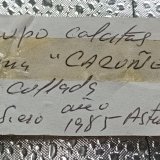 upo calcitas
na "CAROÑE
collada
Siero año
1985 Astu